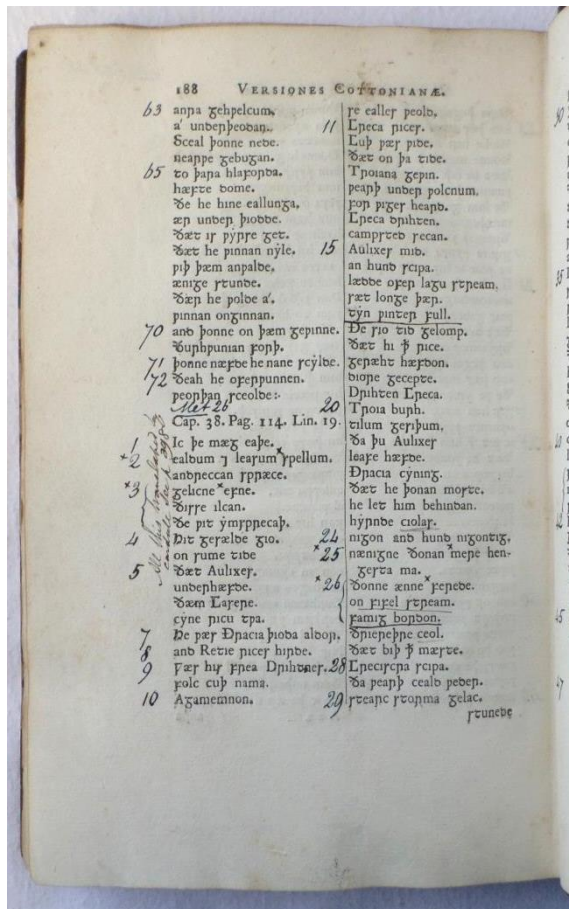 188 VERSIONES COTTONIANÆ.
63 anra gehƿelcum.
a' underþeodan.
Sceal þonne nede.
nearƿe gebugan.
65 to þara hlaforda.
hæfte dome.
Ðe he hine eallunga.
ær under þiodde.
Ðæt is ƿyrse get.
Ðæt he ƿinnan nyle.
ƿiþ þæm anƿalde.
ænige stunde.
Ðær he ƿolde a'.
ƿinnan onginnan.
70 and þonne on þæm geƿinne.
Ðurhƿunian forþ.
71 þonne næfde he nane scylde.
72 Ðeah he oferƿunnen.
ƿeorþan sceolde:·
Met 26
Cap. 38. Pag. 114. Lin. 19.
1 Ic þe mæg eaþe.
*2 ealdum ⁊ leasum *spellum.
andreccan spræce.
*3 gelicne *efne.
Ðisse ilcan.
Ðe ƿit ymsprecaþ.
4 Hit gesælde gio.
on sume tide
5 Ðæt Aulixes.
underhæfde.
Ðæm Casere.
cyne ricu tƿa.
7 He ƿæs Ðracia þioda aldor.
8 and Retie rices hirde.
9 Ƿæs his frea Drihtnes.
folc cuþ nama.
10 Agamemnon.
se ealles ƿeold.
11 Creca rices.
Cuþ ƿæs ƿide.
Ðæt on þa tide.
Troiana geƿin.
ƿearþ under ƿolcnum.
for ƿiges heard.
Creca drihten.
campsted secan.
15 Aulixes mid.
an hund scipa.
lædde ofer lagu stream.
sæt longe þær.
tyn ƿinter full.
Ðe sio tid gelomp.
Ðæt hi ꝥ rice.
geræht hæfdon.
diore gecepte.
Drihten Creca.
20 Troia burh.
tilum gesiþum.
Ða þu Aulixes
leafe hæfde.
Ðracia cyning.
Ðæt he þonan moste.
he let him behindan.
hyrnde ciolas.
24 nigon and hund nigontig.
*25 nænigne ðonan *mere hen-
gesta ma.
*26 Ðonne ænne *ferede.
on fifel stream.
famig bordon.
Ðriereþre ceol.
Ðæt biþ ꝥ mæste.
28 Crecisca scipa.
Ða ƿearþ ceald ƿeder.
29 stearc storma gelac.
stunede